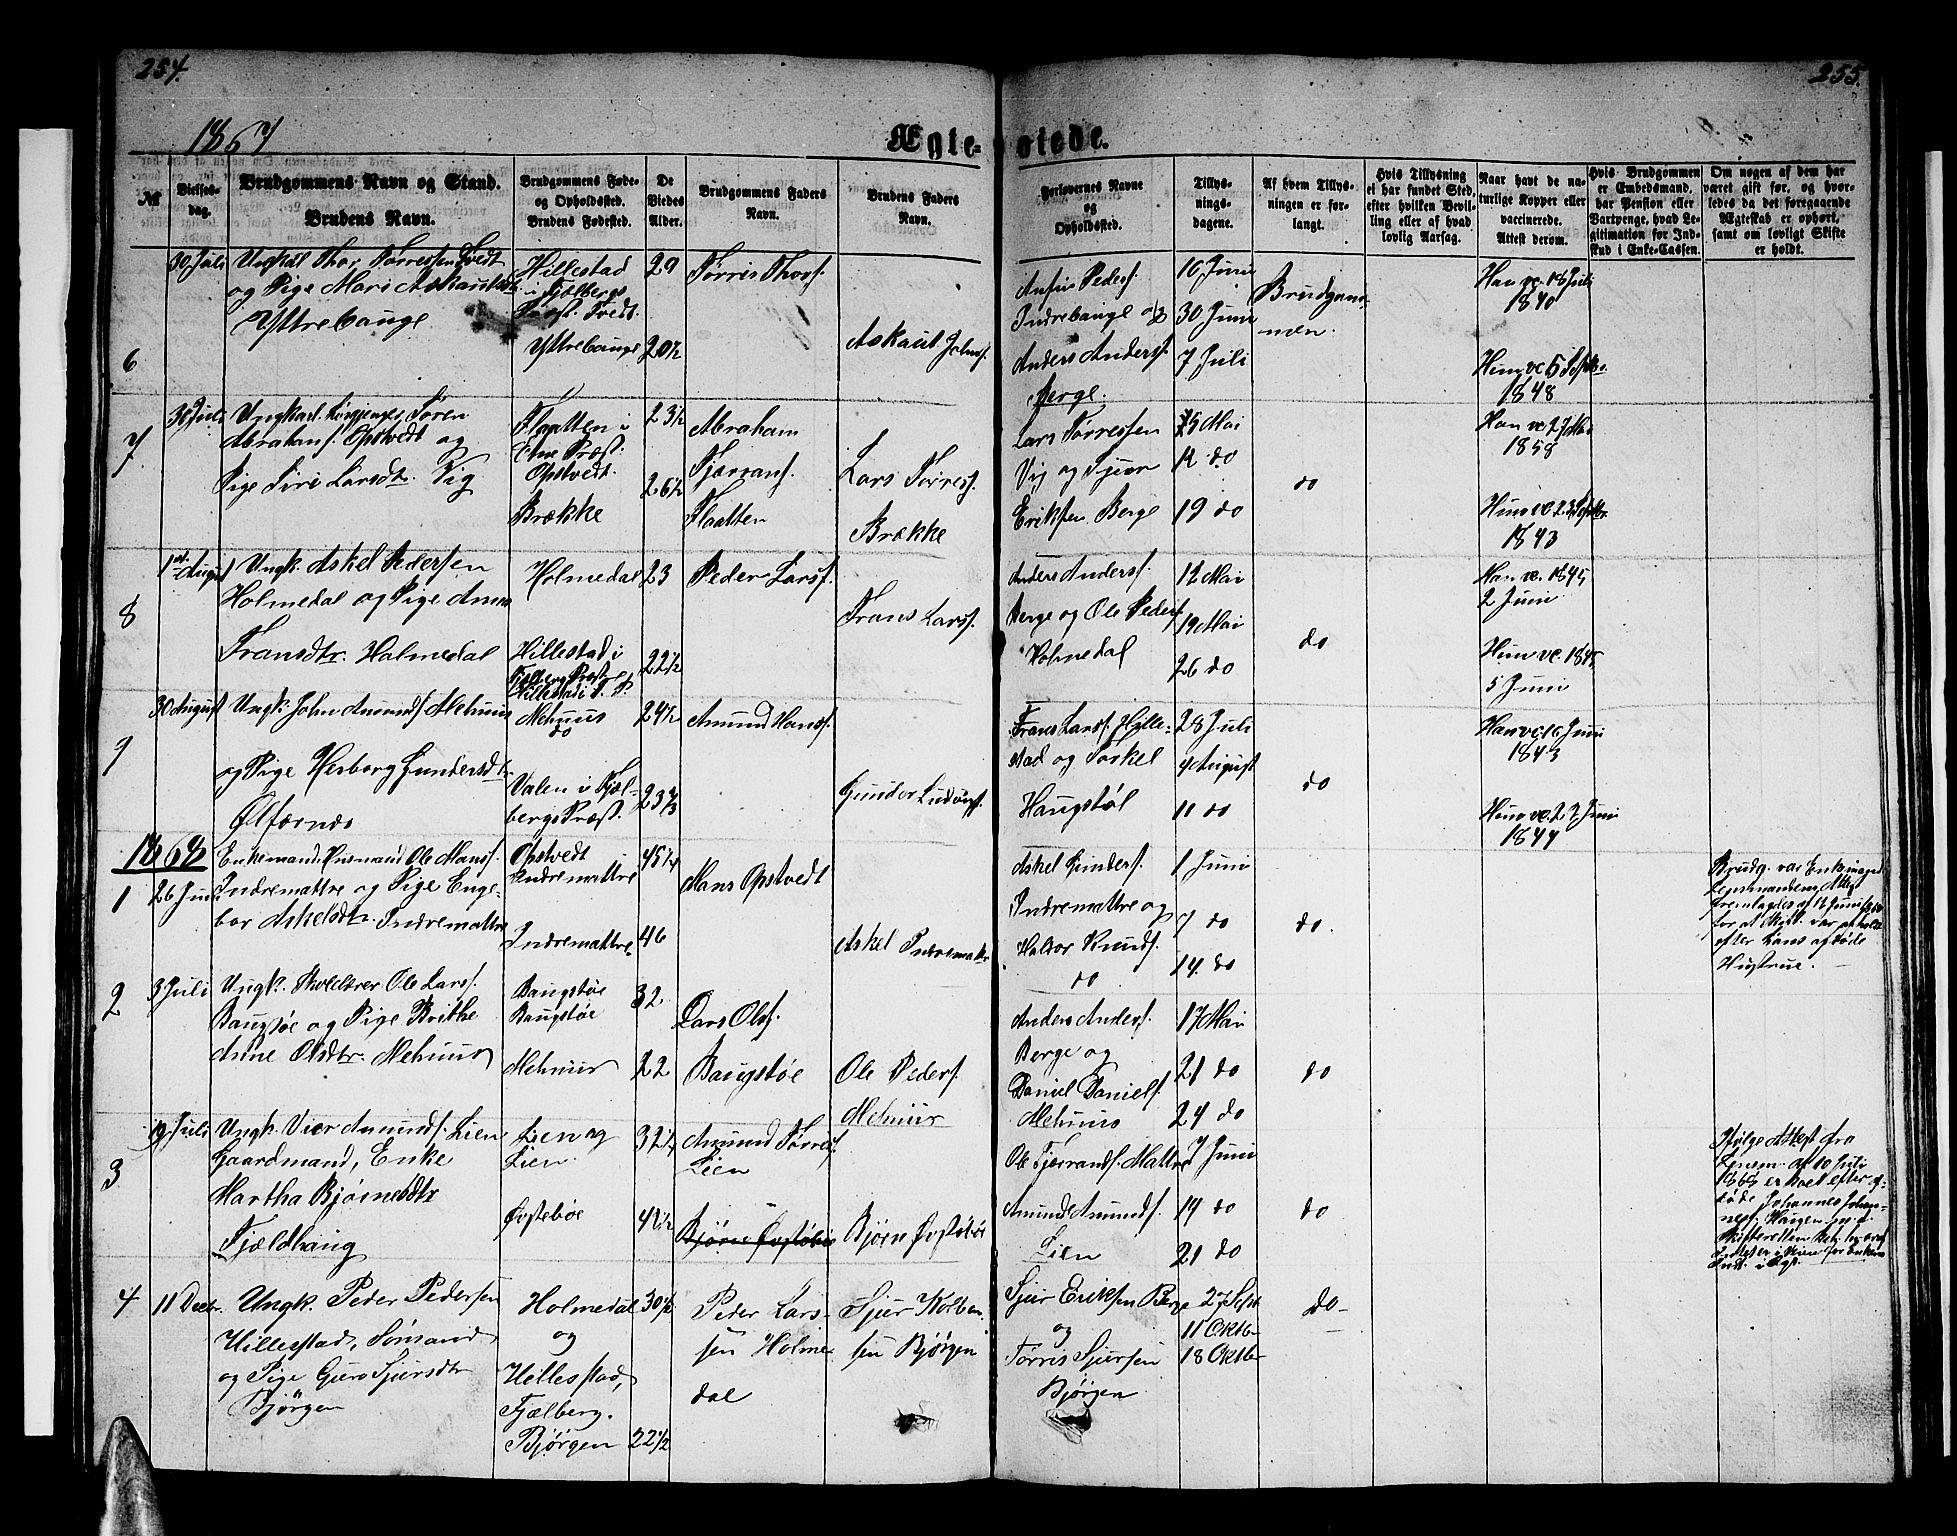 254.
255.
1867
Ægte-viede.
№
Vielses-dag.
Brudgommens Navn og Stand.
Brudens Navn.
Brudgommens Føde- og Opholdssted.
Brudens Fødested.
De Viedes Alder.
Brudgommens Faders Navn.
Brudens Faders Navn.
Forlovernes Navne og Opholdssted.
Tillysningsdagene.
Af hvem Tillysningen er forlangt.
Hvis Tillysning ei har fundet Sted, efter hvilken Bevilling eller af hvad lovlig Aarsag.
Naar havt de naturlige Kopper eller vaccinerede. Attest derom.
Hvis Brudgommen er Embedsmand, har Pension eller Vartpenge, hvad Legitimation for Indskud i Enke-Cassen.
Om nogen af dem har været gift før, og hvorledes da det foregaaende Ægteskab er ophørt, samt om lovligt Skifte er holdt.
6
30 Juli
Ungkal Thor Tørressen Tvedt
og Pige Mari Askautsdtr
Yttrebauge
Hillestad
i Fjælbergs
Præst. Tvedt.
Yttrebauge
29
20½
Tørris Thors.
Askaut Johns.
Anfin Peders.
Indrebauge og
Anders Anders.
Berge.
16 Juni
30 Juni
7 Juli
Brudgommen.
Han vc. 18 Juli
1840
Hun vc 5 Septbr
1848
7
30 Juli
Ungkarl Søren
Abrahams. Opstvedt og
Pige Siri Larsdtr. Vig
Flaatten i
Etne Præst.
Opstvedt.
Brække
23½
26½
Abraham
Flaatten
Lars Tørress.
Brække
Lars Tørressen
Vig og Sjur
Eriksen Berge
5 Mai
12 do
19 do
do
Han vc 27 Mai
1858
Hun vc. 23 Septbr
1843
8
1st August
Ungk. Askel Pedersen
Holmedal og Pige Anna
Fransdtr. Holmedal
Holmedal
Hillestad i
Fjelberg Præst.
23
22½
Peder Larss.
Frans Larss.
Anders Anders.
Berge og Ole Peders.
Holmedal
12 Mai
19 Mai
26 do
do
Han vc. 1845
2 Juni
Hun vc. 1845
5 Juni
9
30 August
Ungk. John Amunds. Mehuus
og Pige Herborg Gundersdtr
Ølfærnes
Hillestad i F. P.
Mehuus
do
Valen i Fjælbergs Præst.
24½
23⅔
Amund Hans.
Gunder Ludvigs.
Frans Larss. Hillestad og Torkel
Haugstøl
28 Juli
4 August
11 do
do
Han vc 16 Juni
1843
Hun vc. 27 Juni
1844
1868
1
26 Juni
Enkemand, Huusmand Ole Hans.
Indremattre og Pige Engebor Askelsdtr. Indremattre
Opstvedt
Indremattre
Indremattre
45¼
46
Hans Opstvedt
Askel Indremattre
Askel Gunders.
Indremattre og
Halvor Knuds.
do
1 Juni
7 do
14 do
do.
Brudg. var Enkemand
Lensmandens Attest
fremlagdes af 12 Juni 1868
for at Skift. var afholdt
efter hans afdøde
Hustrue.
2
3 Juli
Ungk. Ole Lars.
Baugstøe og Pige Brithe
Anne Olsdtr. Mehuus
Baugstøe
Baugstøe
Mehuus
32
22
Lars Ols.
Baugstøe
Ole Peders.
Mehuus
Anders Anders.
Berge og
Daniel Daniels.
Mehuus
17 Mai
21 do
24 do
do
3
19 Juli
Ungk. Vier Amunds. Lien
Gaardmand, Enke
Martha Bjørnesdtr
Fjældhaug
Lien og
Lien
Øvstebøe
32½
42½
Amund Tørres.
Lien
Bjørne Øvstebøe
Bjørn Øvstebøe
Ole Tjerrands. Mattre
Amund Amunds.
Lien
7 Juni
14 do
21 do
do
Ifølge Attest fra
Lensm. af 10 Juli
1868 er holdt efter afdøde Johannes Johannes. Haugen
4
11 Decbr.
Ungk. Peder Pedersen
Hillestad, Sømand
og Pige Guro Sjursdtr
Bjørgen
Holmedal
og
Hillestad,
Fjælberg.
Bjørgen
30½
22½
Peder Larssen Holmedal
Sjur Kolbensen Bjørgen
Sjur Eriksen Berge
og
Tørris Sjursen
Bjørgen
27 Sept
11 Oktbr
18 Oktbr
Do